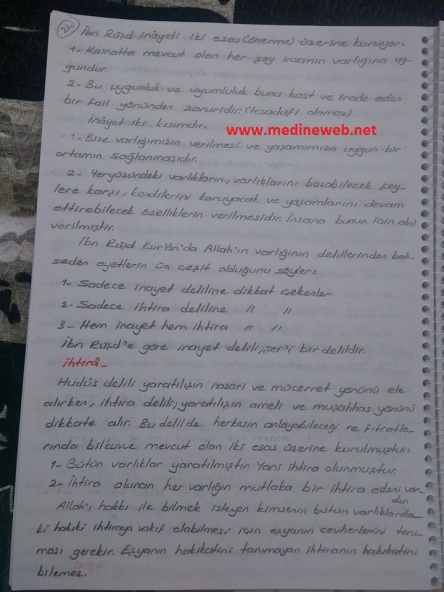 İbn Rüşd inâyeti iki esas (önerme) üzerine kuruyor.
1- Kainatta mevcut olan her şey insanın varlığına uy-
gundur.
2- Bu uygunluk ve uyumluluk bunu kast ve irade eden
bir fail yönünden zaruridir. (tesadüfi olamaz)
inâyet iki kısımdır.
www.medineweb.net
1- Bize varlığımızın verilmesi ve yaşamımıza uygun bir
ortamın sağlanmasıdır.
2- Yeryüzündeki varlıkların, varlıklarını bozabilecek şey-
lere karşı, kendilerini koruyacak ve yaşamlarını devam
ettirebilecek özelliklerin verilmesidir. İnsana bunun için akıl
verilmiştir.
İbn Rüşd Kur'ân'da Allah'ın varlığının delillerinden bah-
seden ayetlerin üç çeşit olduğunu söyler:
1- Sadece inayet deliline dikkat çekenler
2- Sadece ihtira deliline " "
3- Hem inayet hem ihtira " "
İbn Rüşd'e göre inayet delili, şer'i bir delildir.
ihtirâ-
Hudûs delili yaratılışın nazari ve mücerret yönünü ele
alırken, ihtira delili; yaratılışın ameli ve müşahhas yönünü
dikkate alır. Bu delil de herkesin anlayabileceği ve fıtratla-
rında bilkuvve mevcut olan iki esas üzerine kurulmuştur.
1- Bütün varlıklar yaratılmıştır. Yani ihtira olunmuştur.
2- İhtira olunan her varlığın mutlaka bir ihtira edeni var-
dır.
Allah'ı hakkı ile bilmek isteyen kimsenin bütün varlıklarda-
ki hakiki ihtiraya vakıf olabilmesi için eşyanın cevherlerini tanı-
ması gerekir. Eşyanın hakikatini tanımayan ihtiranın hakikatini
bilemez.